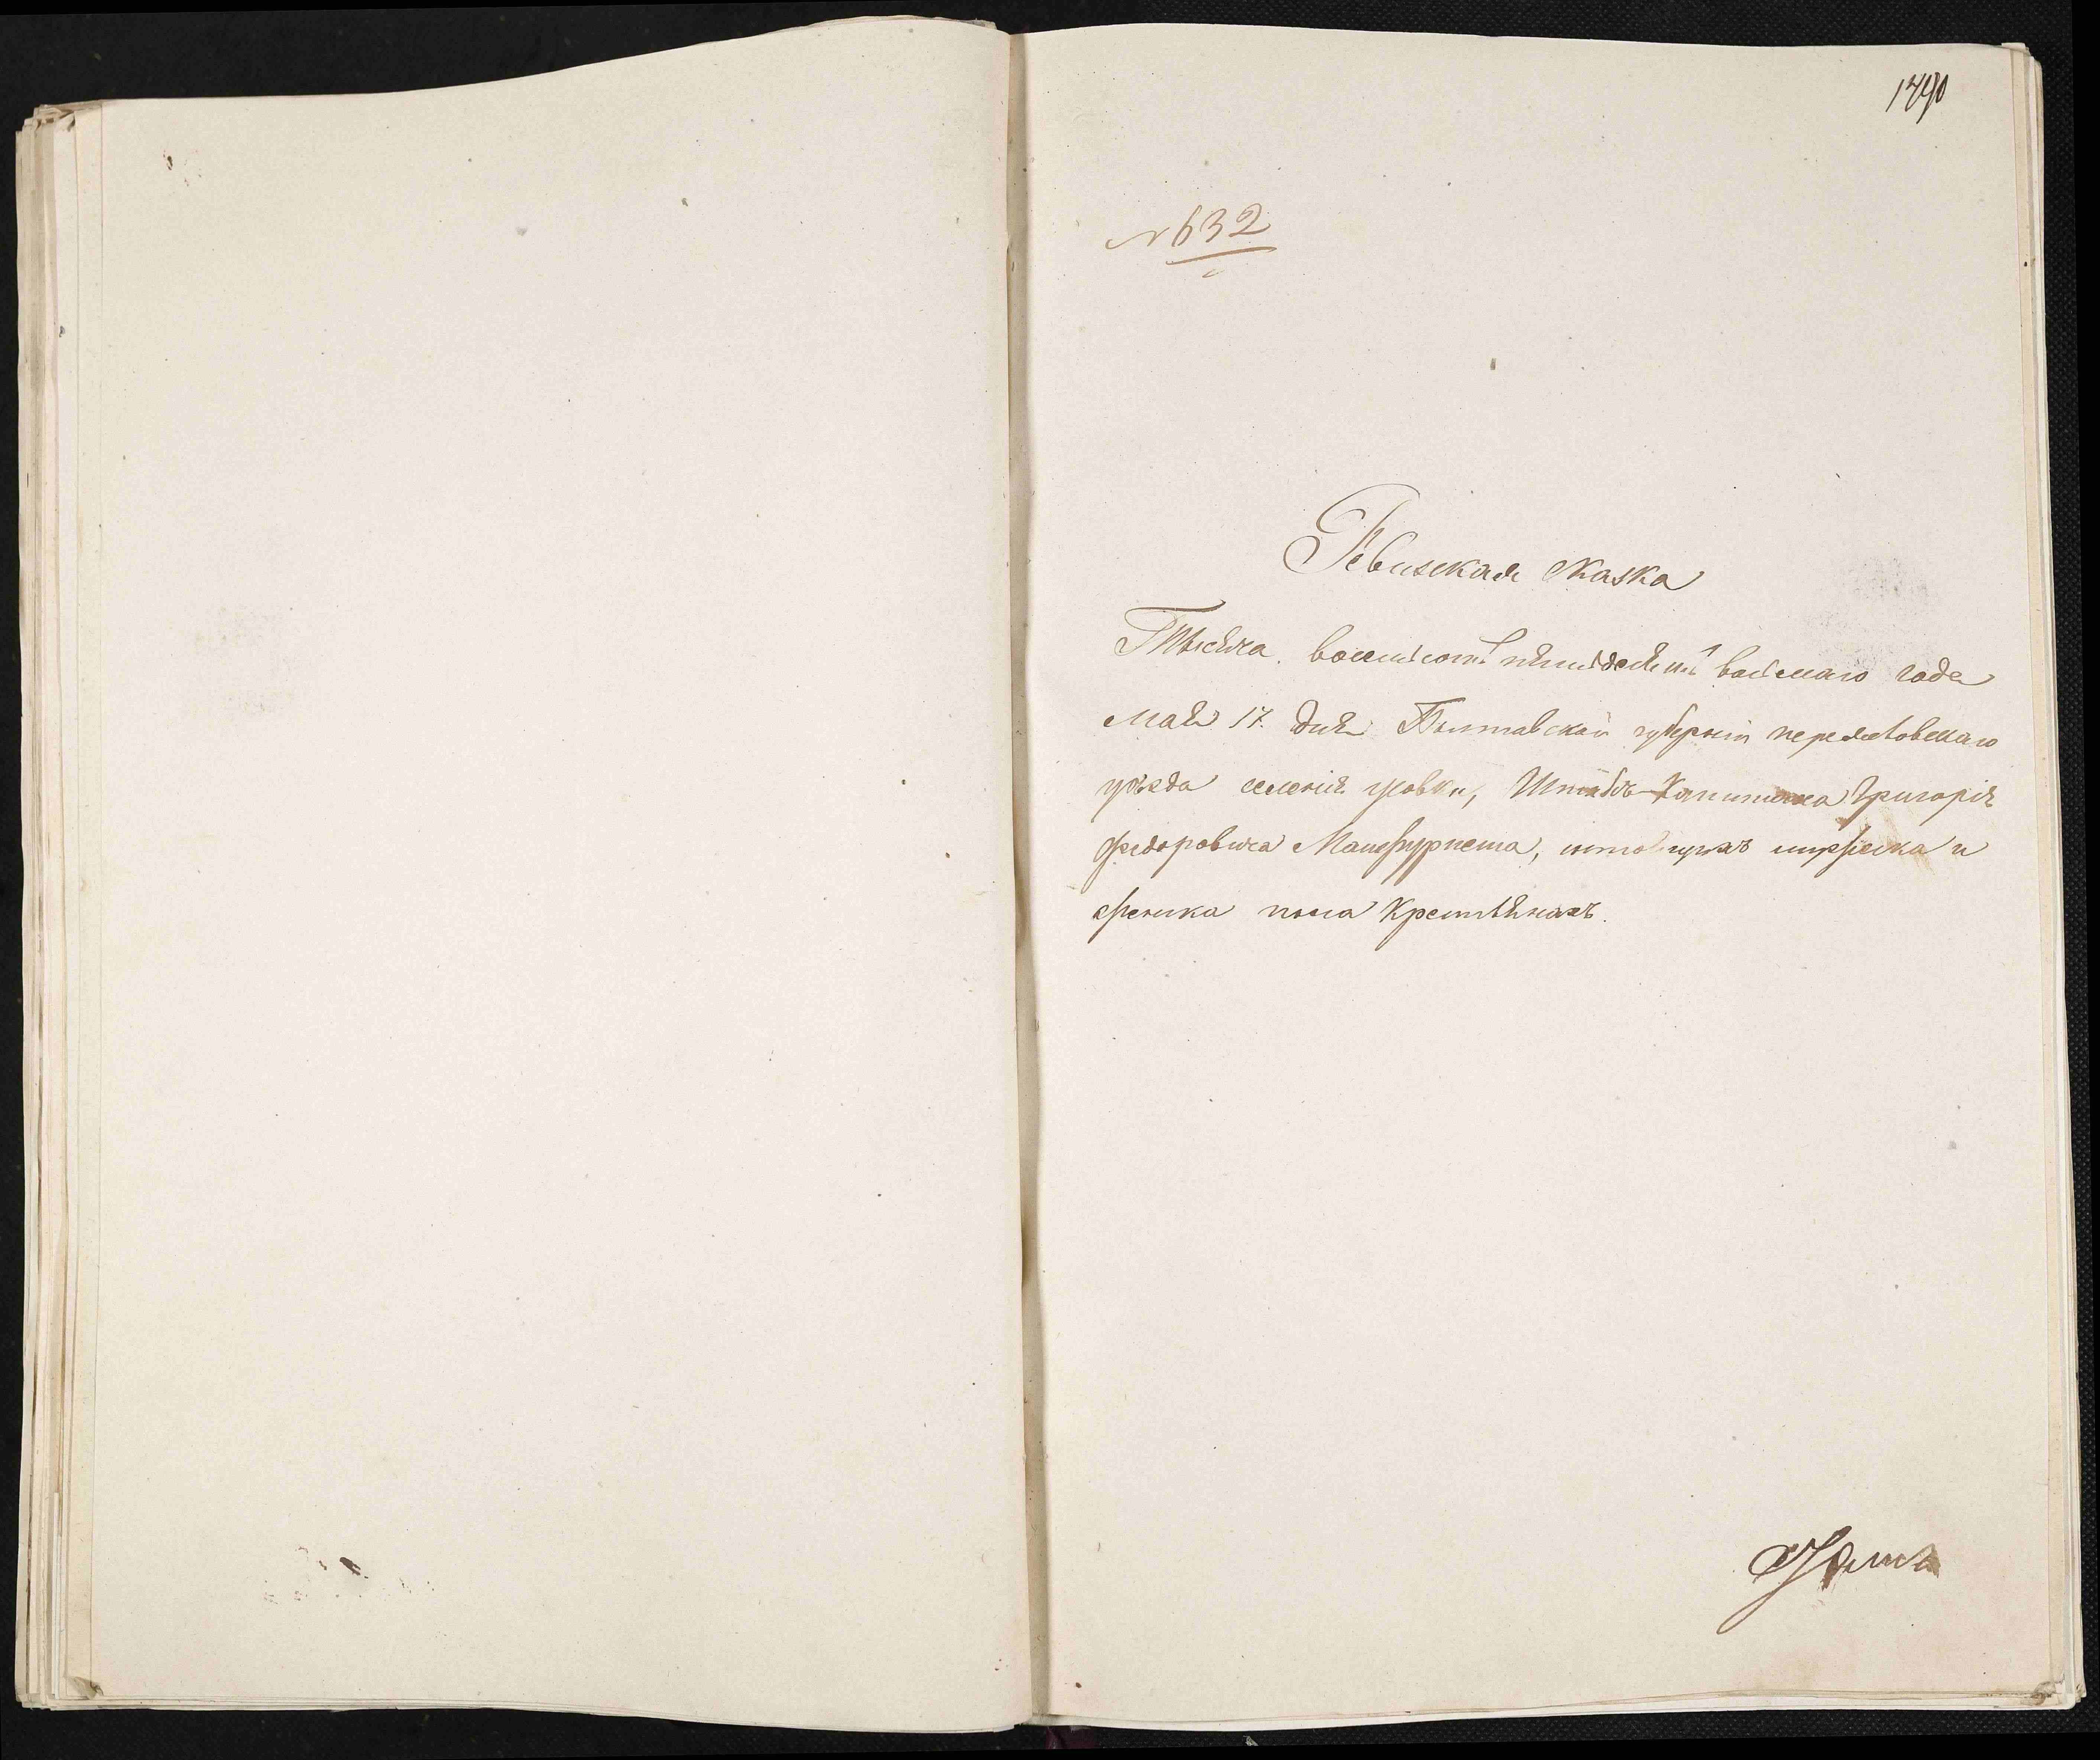 1490
№ 632
Ревизская сказка
Тысяча восемьсотъ пятьдесятъ восьмаго года
мая 17 дня Полтавской губерніи переяславскаго
уѣзда селенія Штабсъ-Капитана Григорія
Федоровича о мужеска и
женска пола Крестьянахъ.